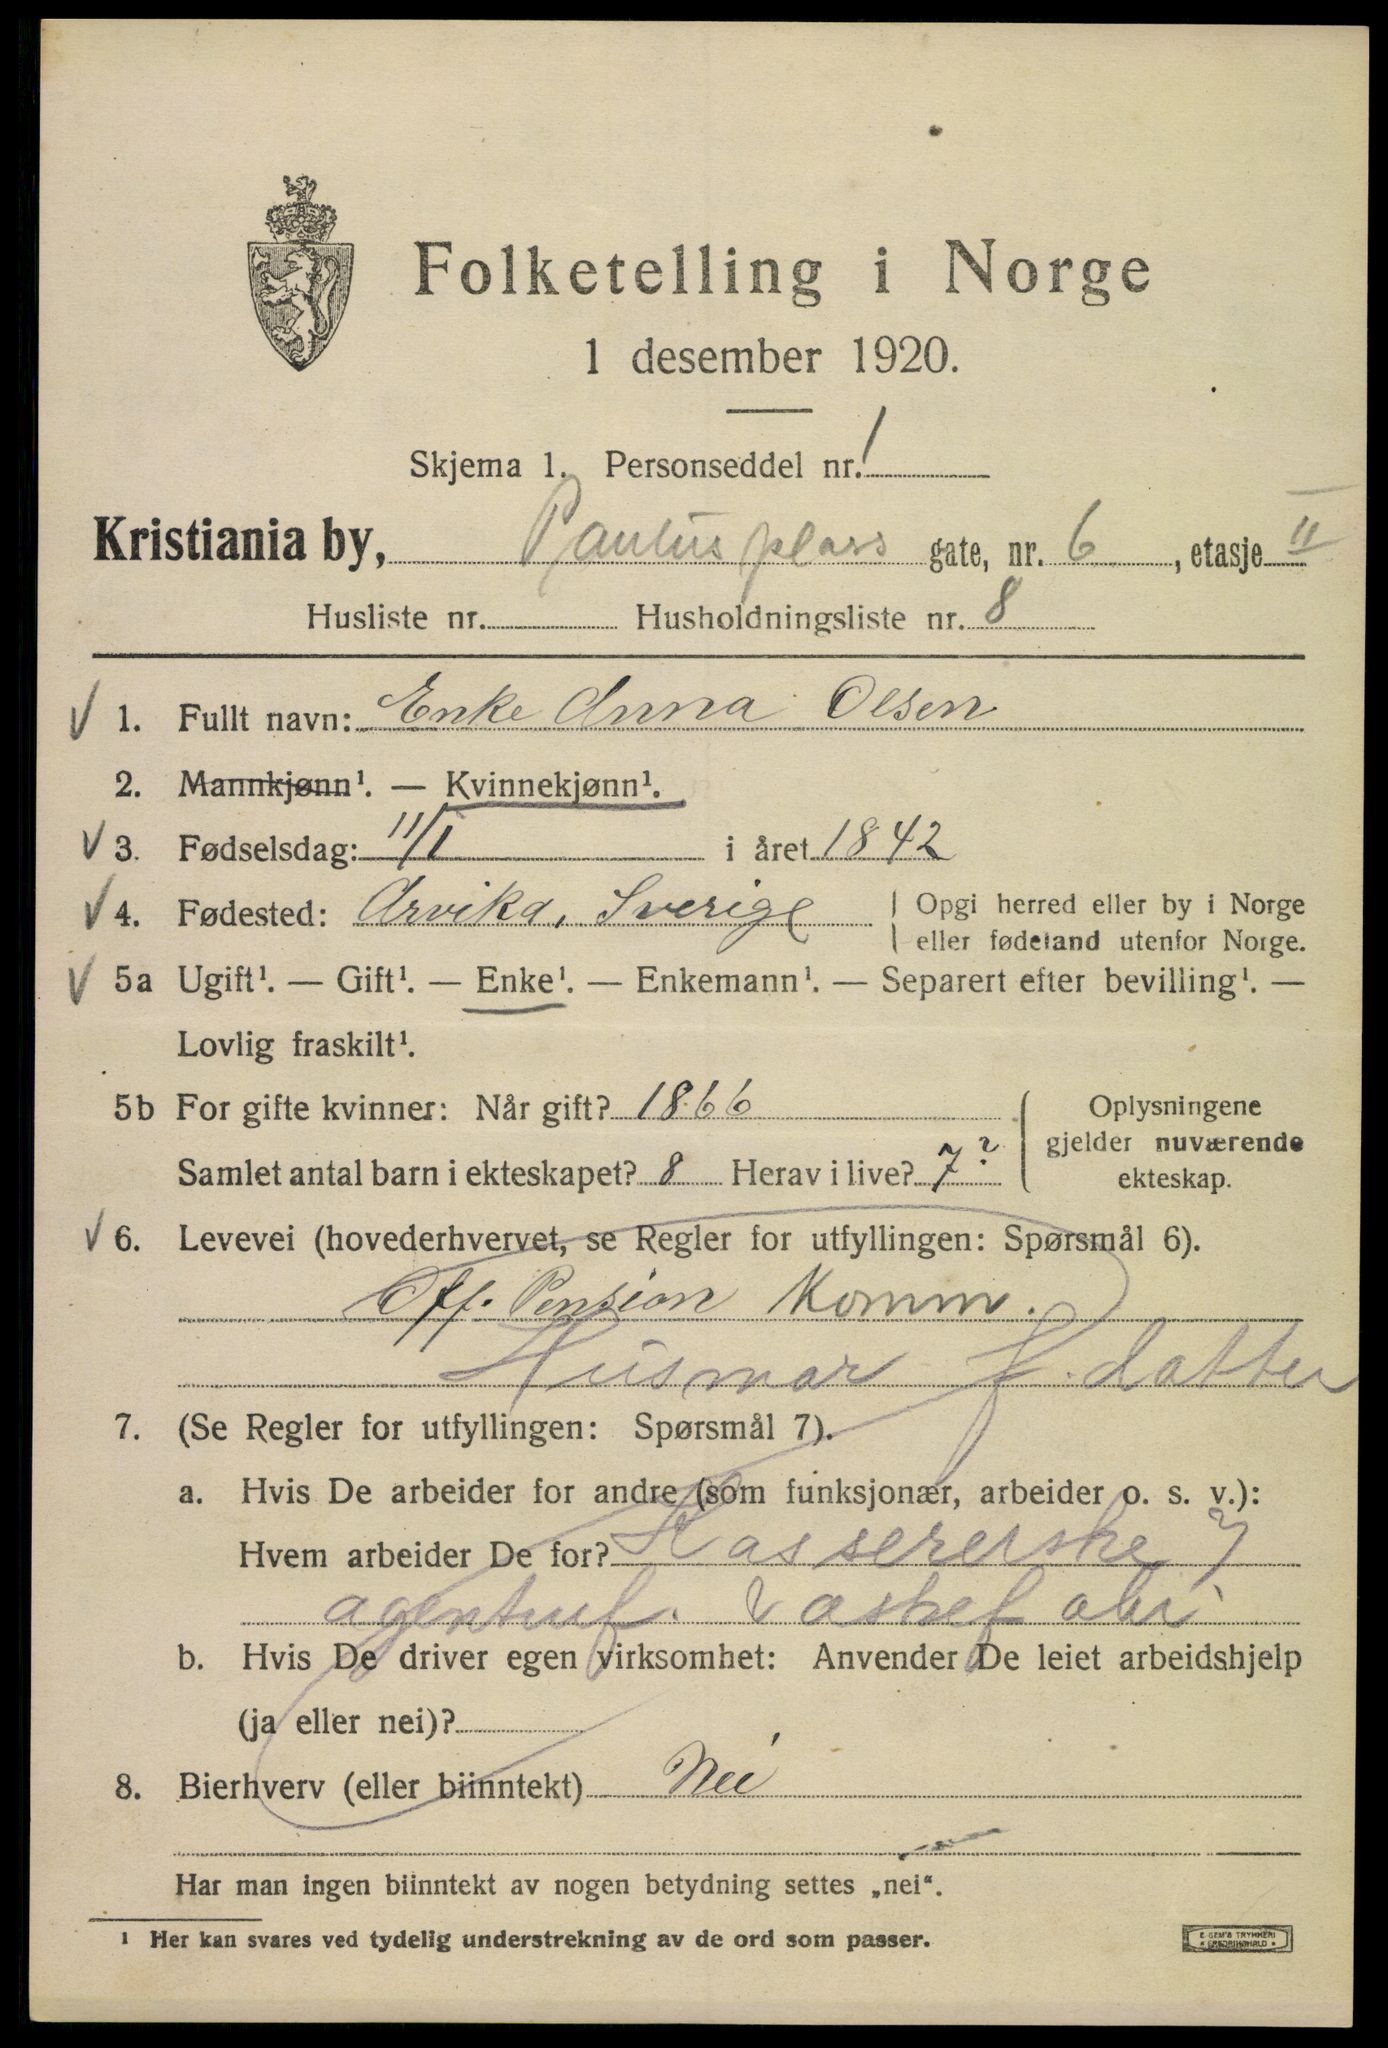 Folketelling i Norge
1 desember 1920.
Skjema 1. Personseddel nr. 1
Kristiania by, Paulus plass gate, nr. 6, etasje II
Husliste nr. Husholdningsliste nr. 8
1. Fullt navn: Enke Anna Olsen
2. Mannkjønn¹. — Kvinnekjønn¹.
3. Fødselsdag: 11/1 i året 1842
4. Fødested: Arvika, Sverige Opgi herred eller by i Norge
eller fødeland utenfor Norge.
5a Ugift¹. — Gift¹. — Enke¹. — Enkemann¹. — Separert efter bevilling¹. —
Lovlig fraskilt¹.
5b For gifte kvinner: Når gift? 1866
Samlet antal barn i ekteskapet? 8 Herav i live? 7?
Oplysningene
gjelder nuværende
ekteskap.
6. Levevei (hovederhvervet, se Regler for utfyllingen: Spørsmål 6).
Off. Pension Komm.
Husmor f. datter
7. (Se Regler for utfyllingen: Spørsmål 7).
a. Hvis De arbeider for andre (som funksjonær, arbeider o. s. v.):
Hvem arbeider De for? Kassererske
agentur &
b. Hvis De driver egen virksomhet: Anvender De leiet arbeidshjelp
(ja eller nei)?
8. Bierhverv (eller biinntekt) Nei
Har man ingen biinntekt av nogen betydning settes „nei“.
¹ Her kan svares ved tydelig understrekning av de ord som passer.